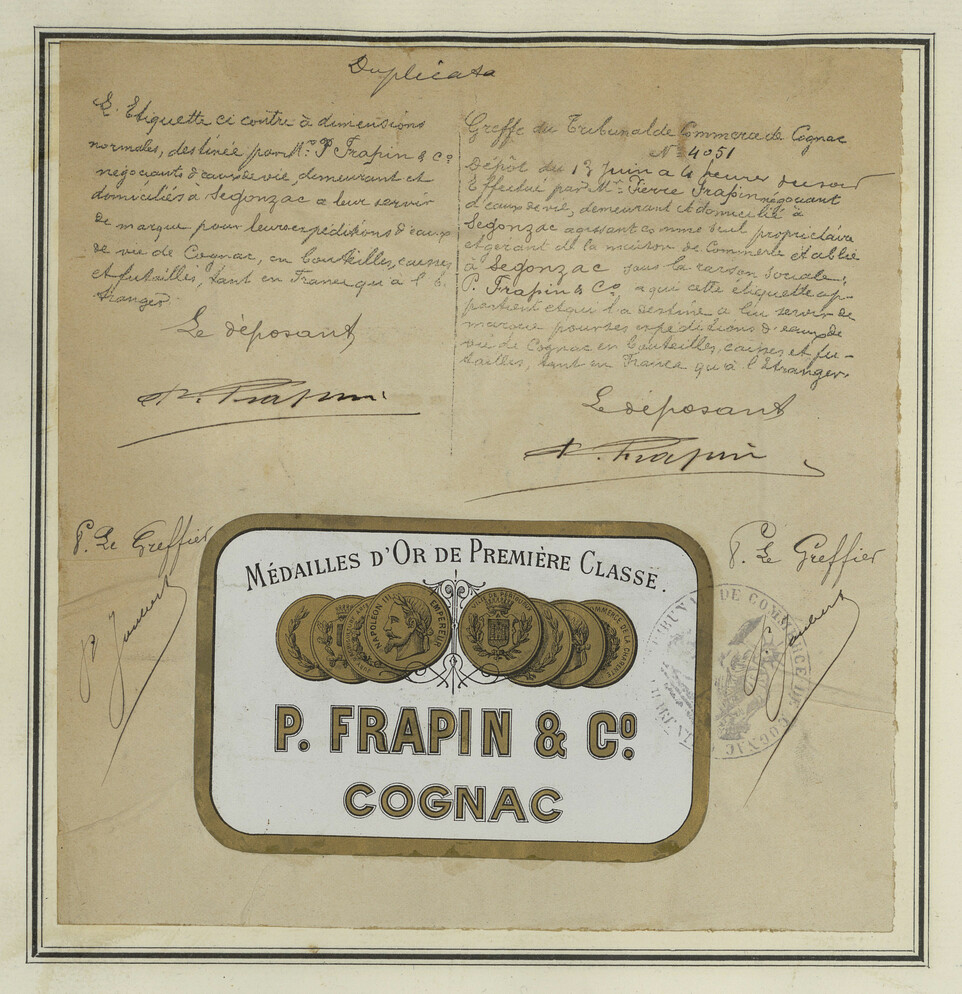 Duplicata
L'Etiquette ci contre à dimensions
normales, destinée par Mr. P Frapin & Co
négociants d'eaux de vie, demeurant et
domiciliés à Segonzac a leur servir
de marque pour leurs expéditions d'eaux
de vie de Cognac, en bouteilles, caisses
et futailles, tant en France qu'à l'é-
tranger.
Le déposant
P. Frapin
Greffe du Tribunal de Commerce de Cognac
No 4051
Dépôt du 13 Juin a 4 heures du soir
Effectué par Mr. Pierre Frapin négociant
d'eaux de vie, demeurant et domicilié à
Segonzac agissant comme seul propriétaire
et gérant de la maison de Commerce établie
à Segonzac sous la raison sociale,
P. Frapin & Co, a qui cette étiquette ap-
partient et qui l'a destiné a lui servir de
marque pour ses expéditions d'eaux de
vie de Cognac en bouteilles, caisses et fu-
tailles, tant en France qu'à l'Etranger.
Le déposant
P. Frapin
P. Le Greffier
P. Le Greffier
MÉDAILLES D'OR DE PREMIÈRE CLASSE.
NAPOLEON III EMPEREUR
P. FRAPIN & Co.
COGNAC
TRIBUNAL DE COMMERCE DE COGNAC